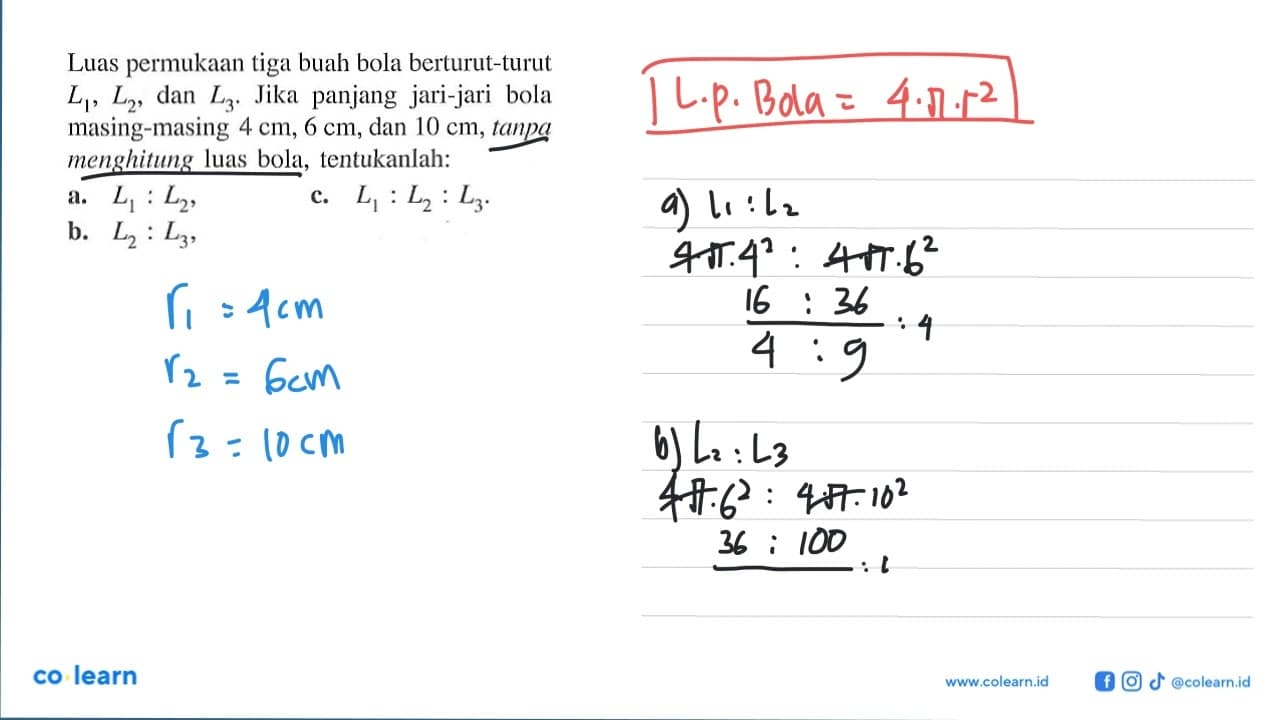 Luas permukaan tiga buah bola berturut-turut
L₁, L₂, dan L₃. Jika panjang jari-jari bola
masing-masing 4 cm, 6 cm, dan 10 cm, tanpa
menghitung luas bola, tentukanlah:
a. L₁ : L₂, c. L₁ : L₂ : L₃.
b. L₂ : L₃,
r₁ = 4cm
r₂ = 6cm
r₃ = 10cm
L.p. Bola = 4.π.r²
a) L₁ : L₂
4π.4² : 4π.6²
16 : 36
: 4
4 : 9
b) L₂ : L₃
4π.6² : 4π.10²
36 : 100
co learn
www.colearn.id
@colearn.id